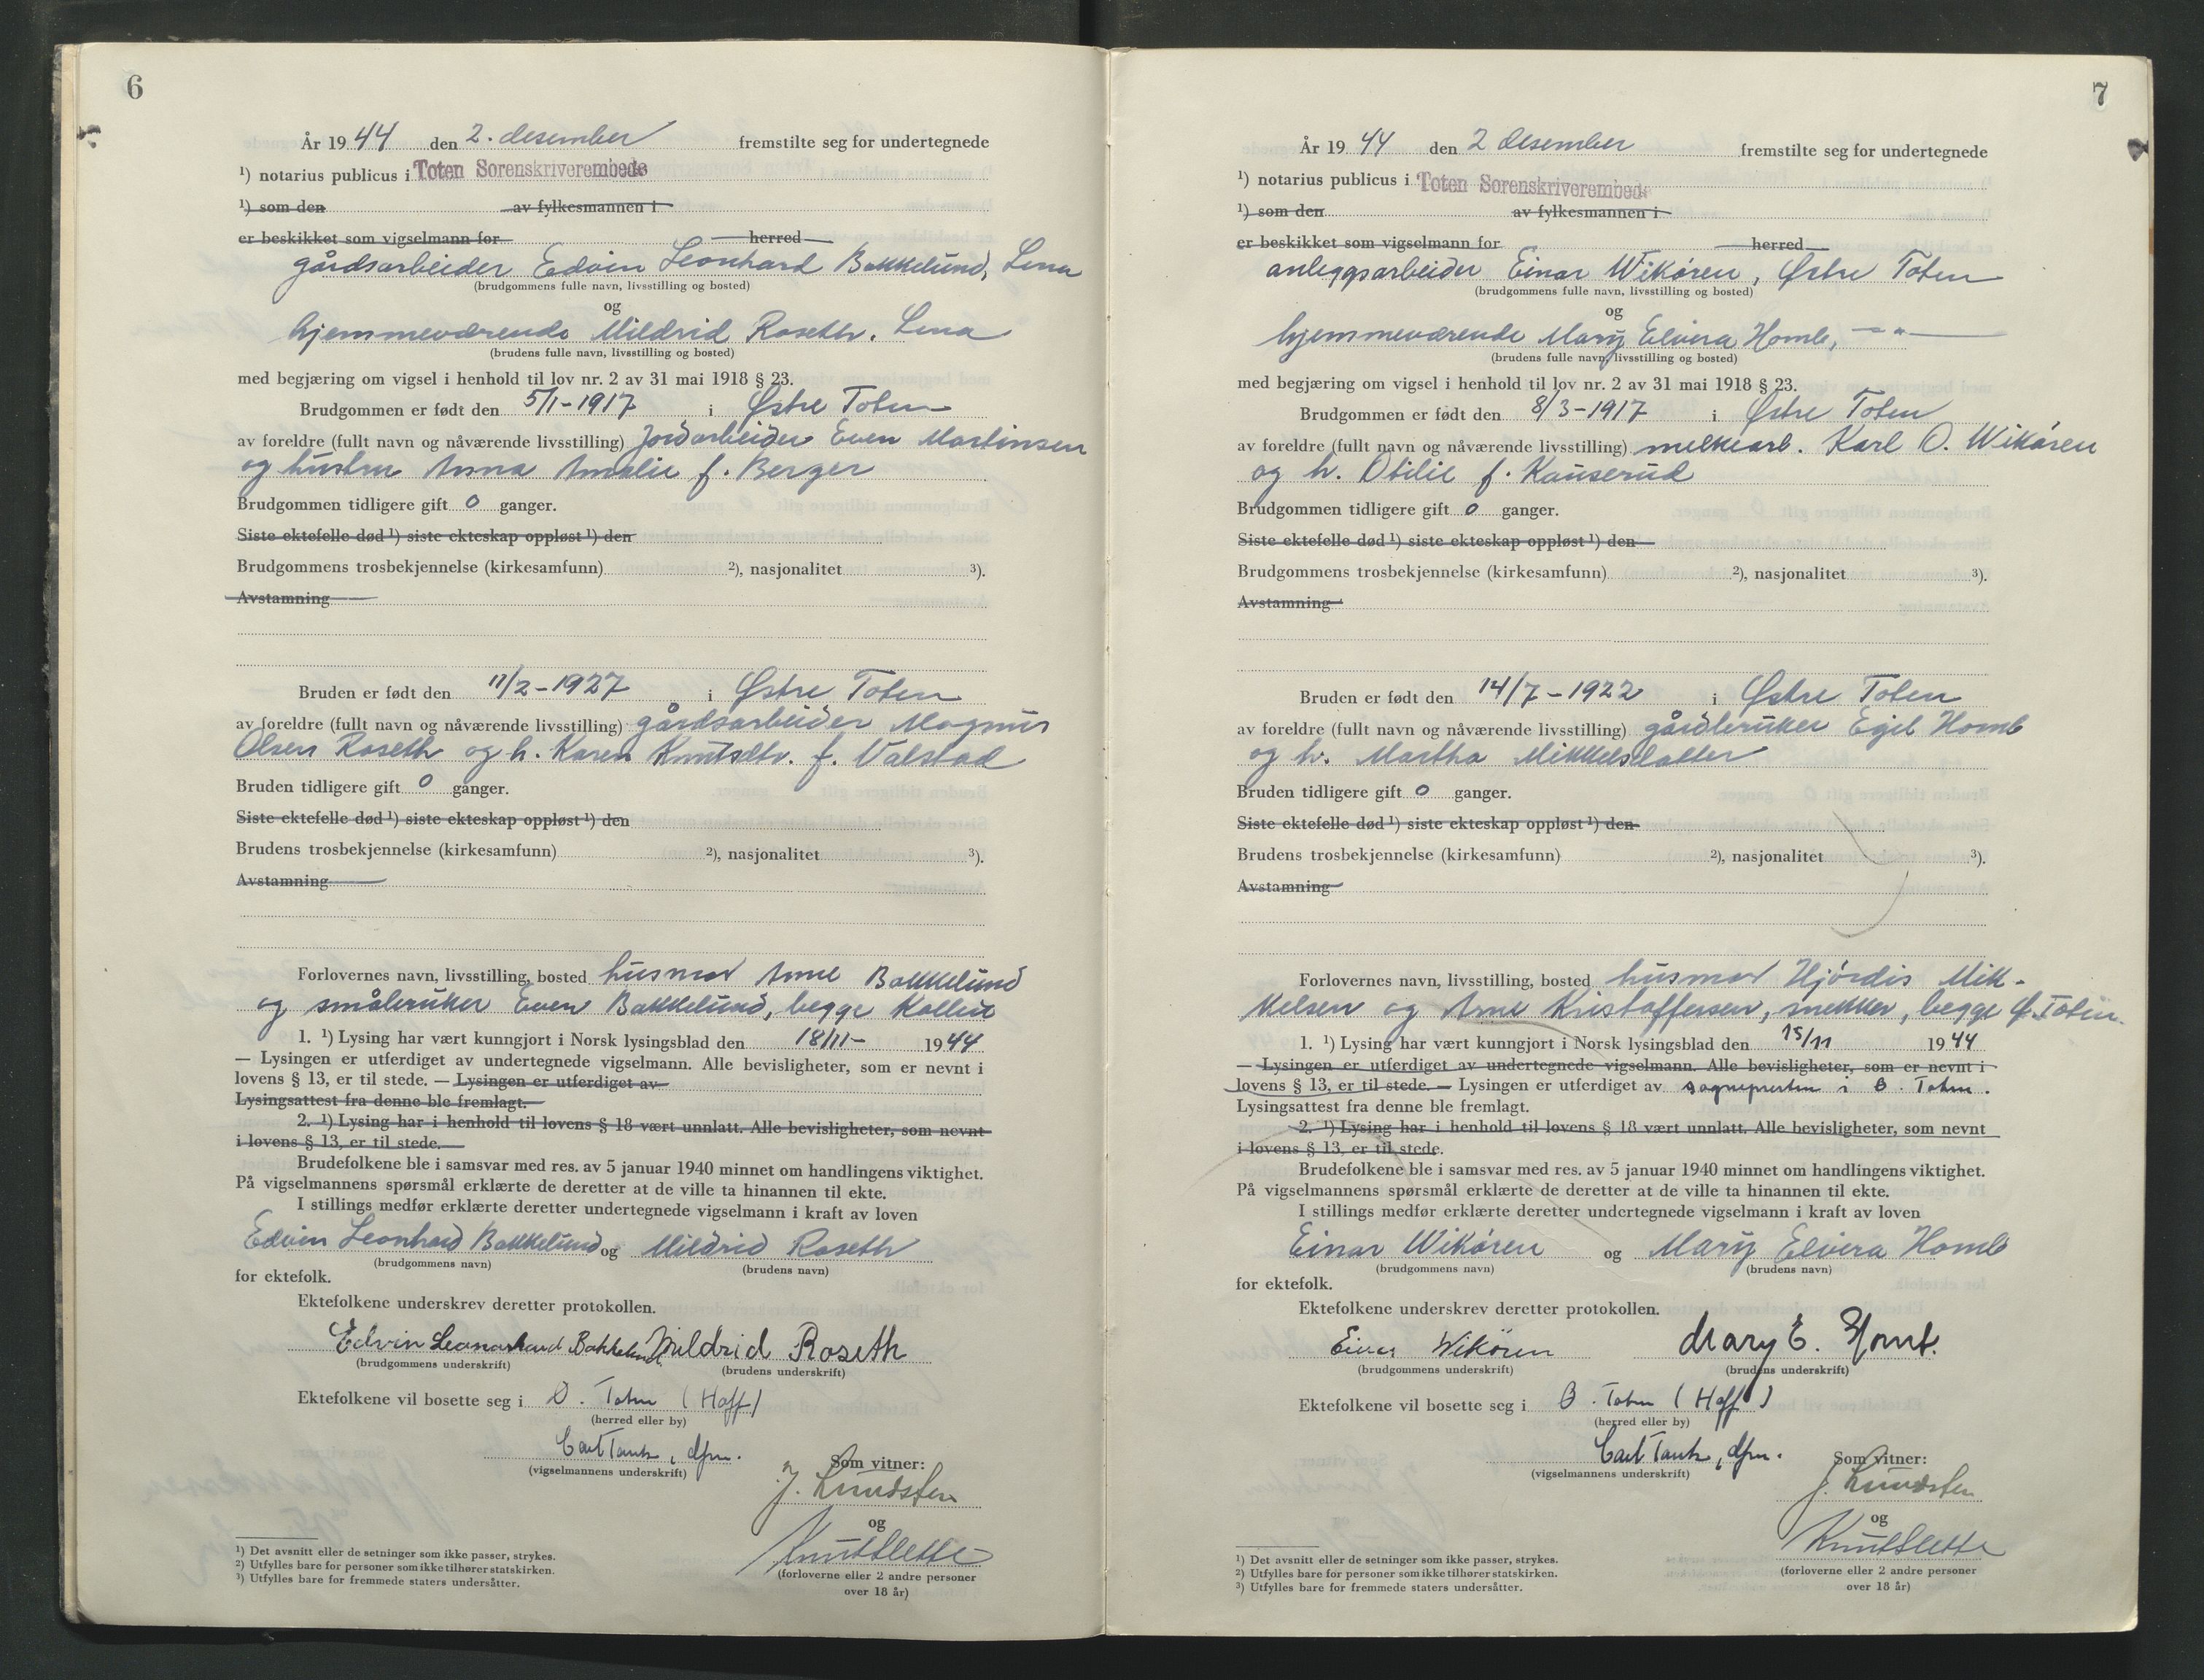 6
År 1944 den 2. desember fremstilte seg for undertegnede
¹) notarius publicus i Toten Sorenskriverembede
¹) som den av fylkesmannen i
er beskikket som vigselmann for herred
gårdsarbeider Edvin Leonhard Bakkelund, Lena
(brudgommens fulle navn, livsstilling og bosted)
og
hjemmeværende Mildrid Roseth. Lena
(brudens fulle navn, livsstilling og bosted)
med begjæring om vigsel i henhold til lov nr. 2 av 31 mai 1918 § 23.
Brudgommen er født den 5/1-1917 i Østre Toten
av foreldre (fullt navn og nåværende livsstilling) Jordarbeider Even Martinsen
og hustru Anna Amalie f. Berger
Brudgommen tidligere gift 0 ganger.
Siste ektefelle død ¹) siste ekteskap oppløst ¹) den
Brudgommens trosbekjennelse (kirkesamfunn) ²), nasjonalitet ³).
Avstamning
Bruden er født den 11/2-1927 i Østre Toten
av foreldre (fullt navn og nåværende livsstilling) gårdsarbeider Magnus
Olsen Roseth og h. Karen Knutsdtr. f. Valstad
Bruden tidligere gift 0 ganger.
Siste ektefelle død ¹) siste ekteskap oppløst ¹) den
Brudens trosbekjennelse (kirkesamfunn) ²), nasjonalitet ³).
Avstamning
Forlovernes navn, livsstilling, bosted husmor Anne Bakkelund
og småbruker Even Bakkelund, begge Kolbu
1. ¹) Lysing har vært kunngjort i Norsk lysingsblad den 18/11- 1944
— Lysingen er utferdiget av undertegnede vigselmann. Alle bevisligheter, som er nevnt i
lovens § 13, er til stede. — Lysingen er utferdiget av
Lysingsattest fra denne ble fremlagt.
2. ¹) Lysing har i henhold til lovens § 18 vært unnlatt. Alle bevisligheter, som nevnt
i lovens § 13, er til stede.
Brudefolkene ble i samsvar med res. av 5 januar 1940 minnet om handlingens viktighet.
På vigselmannens spørsmål erklærte de deretter at de ville ta hinannen til ekte.
I stillings medfør erklærte deretter undertegnede vigselmann i kraft av loven
Edvin Leonhard Bakkelund og Mildrid Roseth
(brudgommens navn) (brudens navn)
for ektefolk.
Ektefolkene underskrev deretter protokollen.
Edvin Leonarhard Bakkelund Mildrid Roseth
(brudgommens underskrift) (brudens underskrift)
Ektefolkene vil bosette seg i Ø. Toten (Hoff)
(herred eller by)
Carl Tank, dfm.
(vigselmannens underskrift)
Som vitner:
J. Lundsten
og
Knut Slette
(forloverne eller 2 andre personer
over 18 år)
¹) Det avsnitt eller de setninger som ikke passer, strykes.
²) Utfylles bare for personer som ikke tilhører statskirken.
³) Utfylles bare for fremmede staters undersåtter.
7
År 1944 den 2 desember fremstilte seg for undertegnede
¹) notarius publicus i Toten Sorenskriverembede
¹) som den av fylkesmannen i
er beskikket som vigselmann for herred
anleggsarbeider Einar Wikøren, Østre Toten
(brudgommens fulle navn, livsstilling og bosted)
og
hjemmeværende Mary Elvira Homb, — " —
(brudens fulle navn, livsstilling og bosted)
med begjæring om vigsel i henhold til lov nr. 2 av 31 mai 1918 § 23.
Brudgommen er født den 8/3-1917 i Østre Toten
av foreldre (fullt navn og nåværende livsstilling) melkearb. Karl O. Wikøren
og h. Otilie f. Kauserud
Brudgommen tidligere gift 0 ganger.
Siste ektefelle død ¹) siste ekteskap oppløst ¹) den
Brudgommens trosbekjennelse (kirkesamfunn) ²), nasjonalitet ³).
Avstamning
Bruden er født den 14/7-1922 i Østre Toten
av foreldre (fullt navn og nåværende livsstilling) gårdbruker Egil Homb
og h. Martha Mikkelsdatter
Bruden tidligere gift 0 ganger.
Siste ektefelle død ¹) siste ekteskap oppløst ¹) den
Brudens trosbekjennelse (kirkesamfunn) ²), nasjonalitet ³).
Avstamning
Forlovernes navn, livsstilling, bosted husmor Hjørdis Mik-
kelsen og Arne Kristoffersen, snekker, begge Ø. Toten.
1. ¹) Lysing har vært kunngjort i Norsk lysingsblad den 15/11 1944
— Lysingen er utferdiget av undertegnede vigselmann. Alle bevisligheter, som er nevnt i
lovens § 13, er til stede. — Lysingen er utferdiget av sognepresten i Ø. Toten.
Lysingsattest fra denne ble fremlagt.
2. ¹) Lysing har i henhold til lovens § 18 vært unnlatt. Alle bevisligheter, som nevnt
i lovens § 13, er til stede.
Brudefolkene ble i samsvar med res. av 5 januar 1940 minnet om handlingens viktighet.
På vigselmannens spørsmål erklærte de deretter at de ville ta hinannen til ekte.
I stillings medfør erklærte deretter undertegnede vigselmann i kraft av loven
Einar Wikøren og Mary Elvira Homb
(brudgommens navn) (brudens navn)
for ektefolk.
Ektefolkene underskrev deretter protokollen.
Einar Wikøren Mary E. Homb.
(brudgommens underskrift) (brudens underskrift)
Ektefolkene vil bosette seg i Ø. Toten (Hoff)
(herred eller by)
Carl Tank, dfm.
(vigselmannens underskrift)
Som vitner:
J. Lundsten
og
Knut Slette
(forloverne eller 2 andre personer
over 18 år)
¹) Det avsnitt eller de setninger som ikke passer, strykes.
²) Utfylles bare for personer som ikke tilhører statskirken.
³) Utfylles bare for fremmede staters undersåtter.